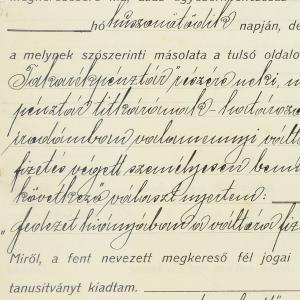 hó huszonötödik napján, de
a melynek szószerinti másolata a tulsó oldalo
Takarékpénztár részére neki, m
pénztár titkárának - határozo
irodámban valamennyi vált
fizetés végett személyesen bem
következő választ nyertem:
"fedezet hiányában a váltóra fiz
Miről, a fent nevezett megkereső fél jogai
tanusítványt kiadtam.